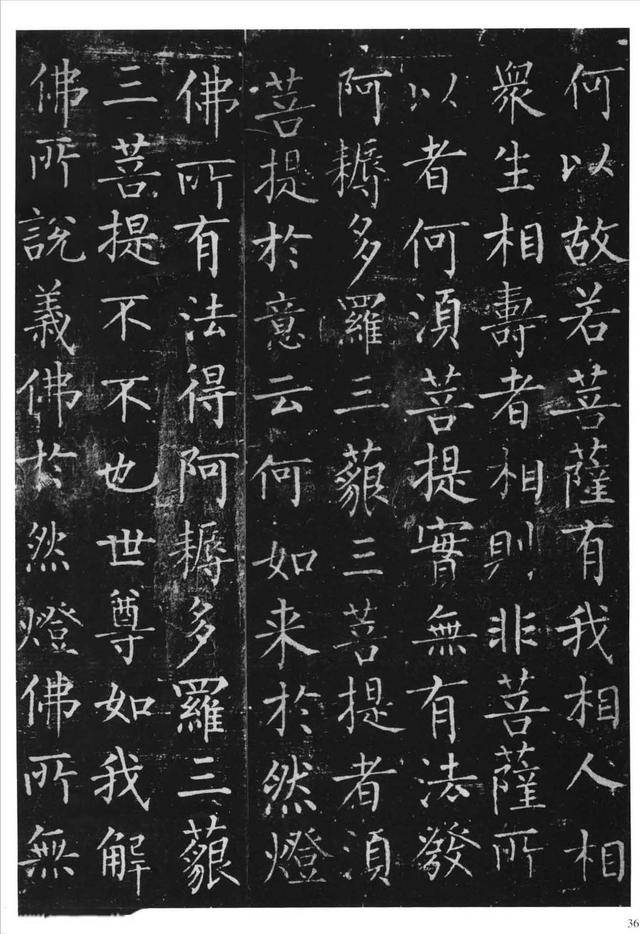 何以故若菩薩有我相人相
衆生相壽者相則非菩薩所
以者何湏菩提實無有法發
阿耨多羅三藐三菩提者湏
菩提於意云何如来於然燈
佛所有法得阿耨多羅三藐
三菩提不不也世尊如我解
佛所說義佛於然燈佛所無
36